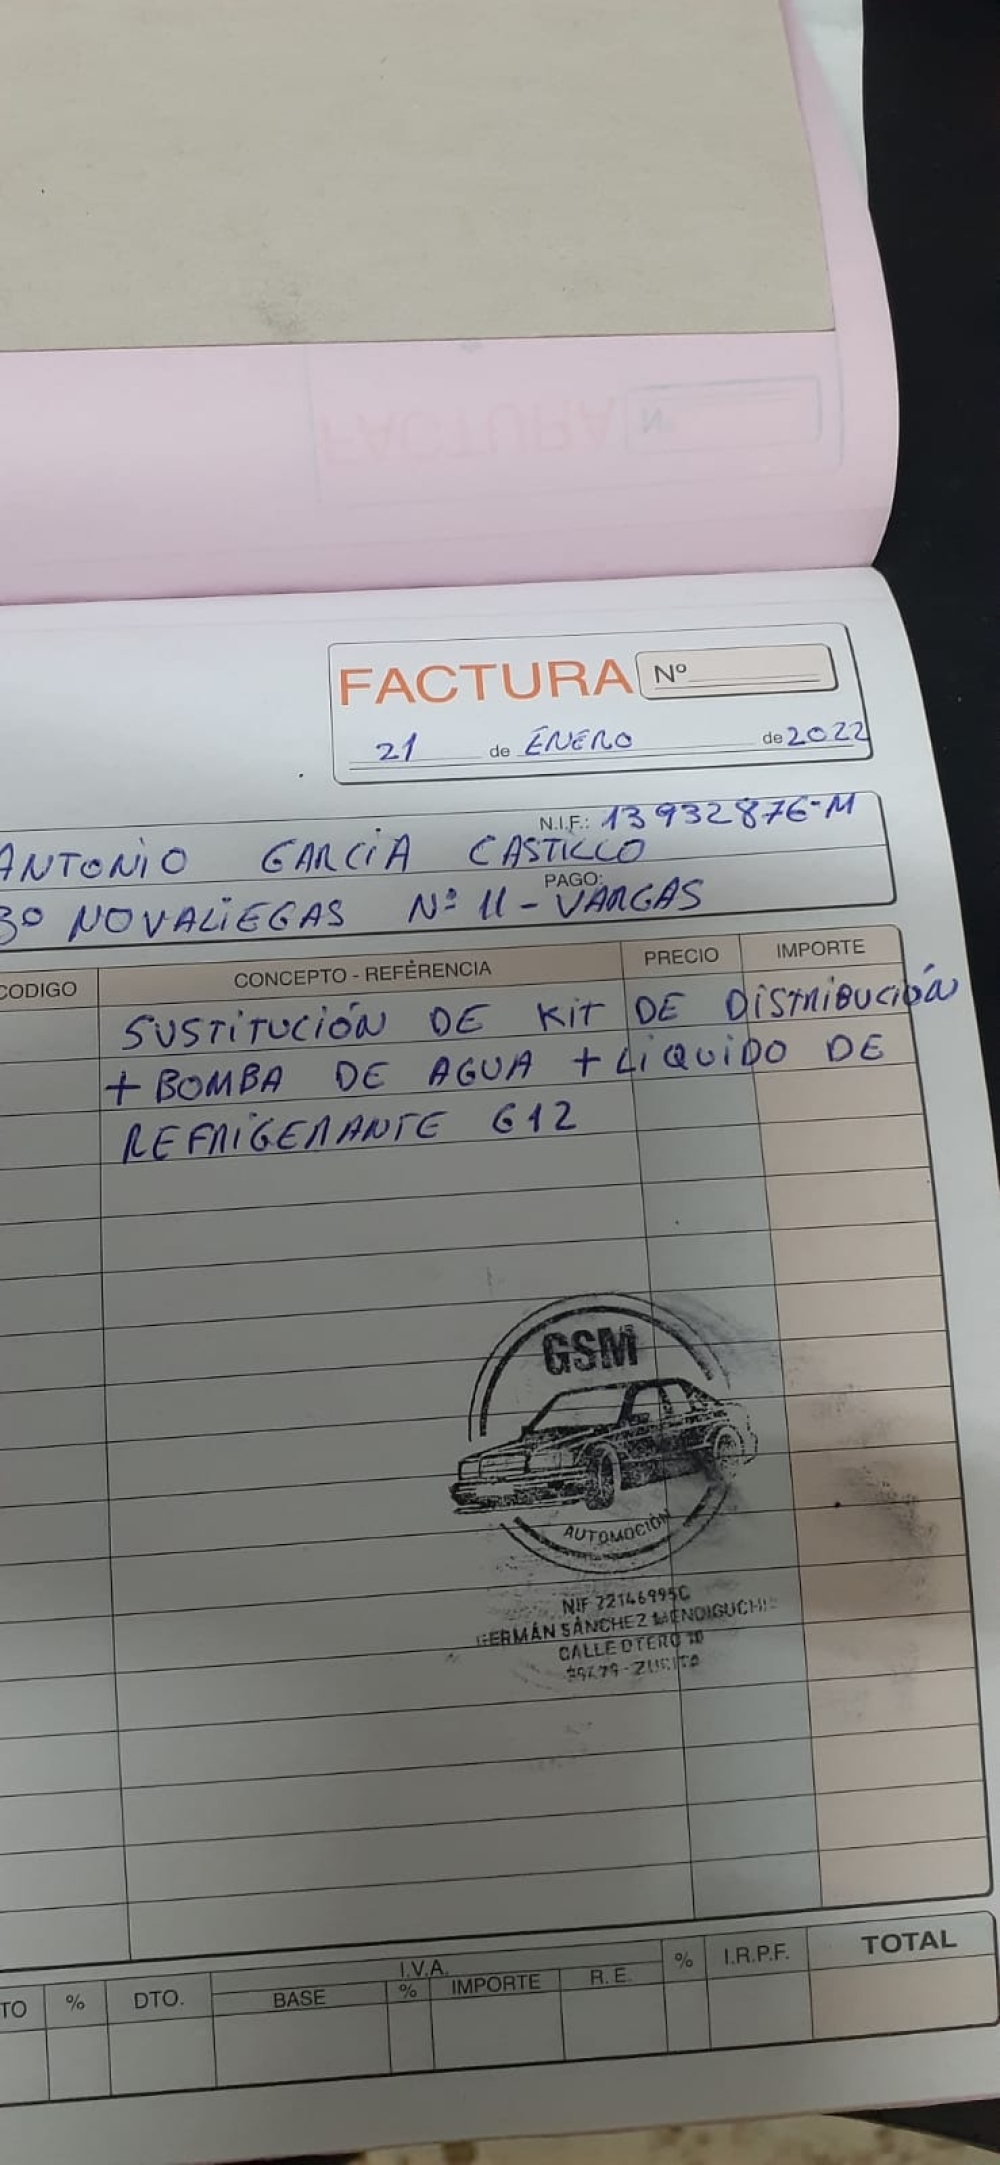 FACTURA Nº
21 de ENERO de 2022
N.I.F.: 13932876-M
ANTONIO GARCIA CASTILLO
PAGO:
Bº NOVALIEGAS Nº 11 - VARGAS
CODIGO CONCEPTO - REFERENCIA PRECIO IMPORTE
SUSTITUCIÓN DE KIT DE DISTRIBUCIÓN
+ BOMBA DE AGUA + LIQUIDO DE
REFRIGERANTE G12
GSM
AUTOMOCIÓN
NIF 72146995C
GERMÁN SÁNCHEZ MENDIGUCHI
CALLE OTERO 10
ZURITA
I.V.A. % I.R.P.F. TOTAL
TO % DTO. BASE % IMPORTE R.E.